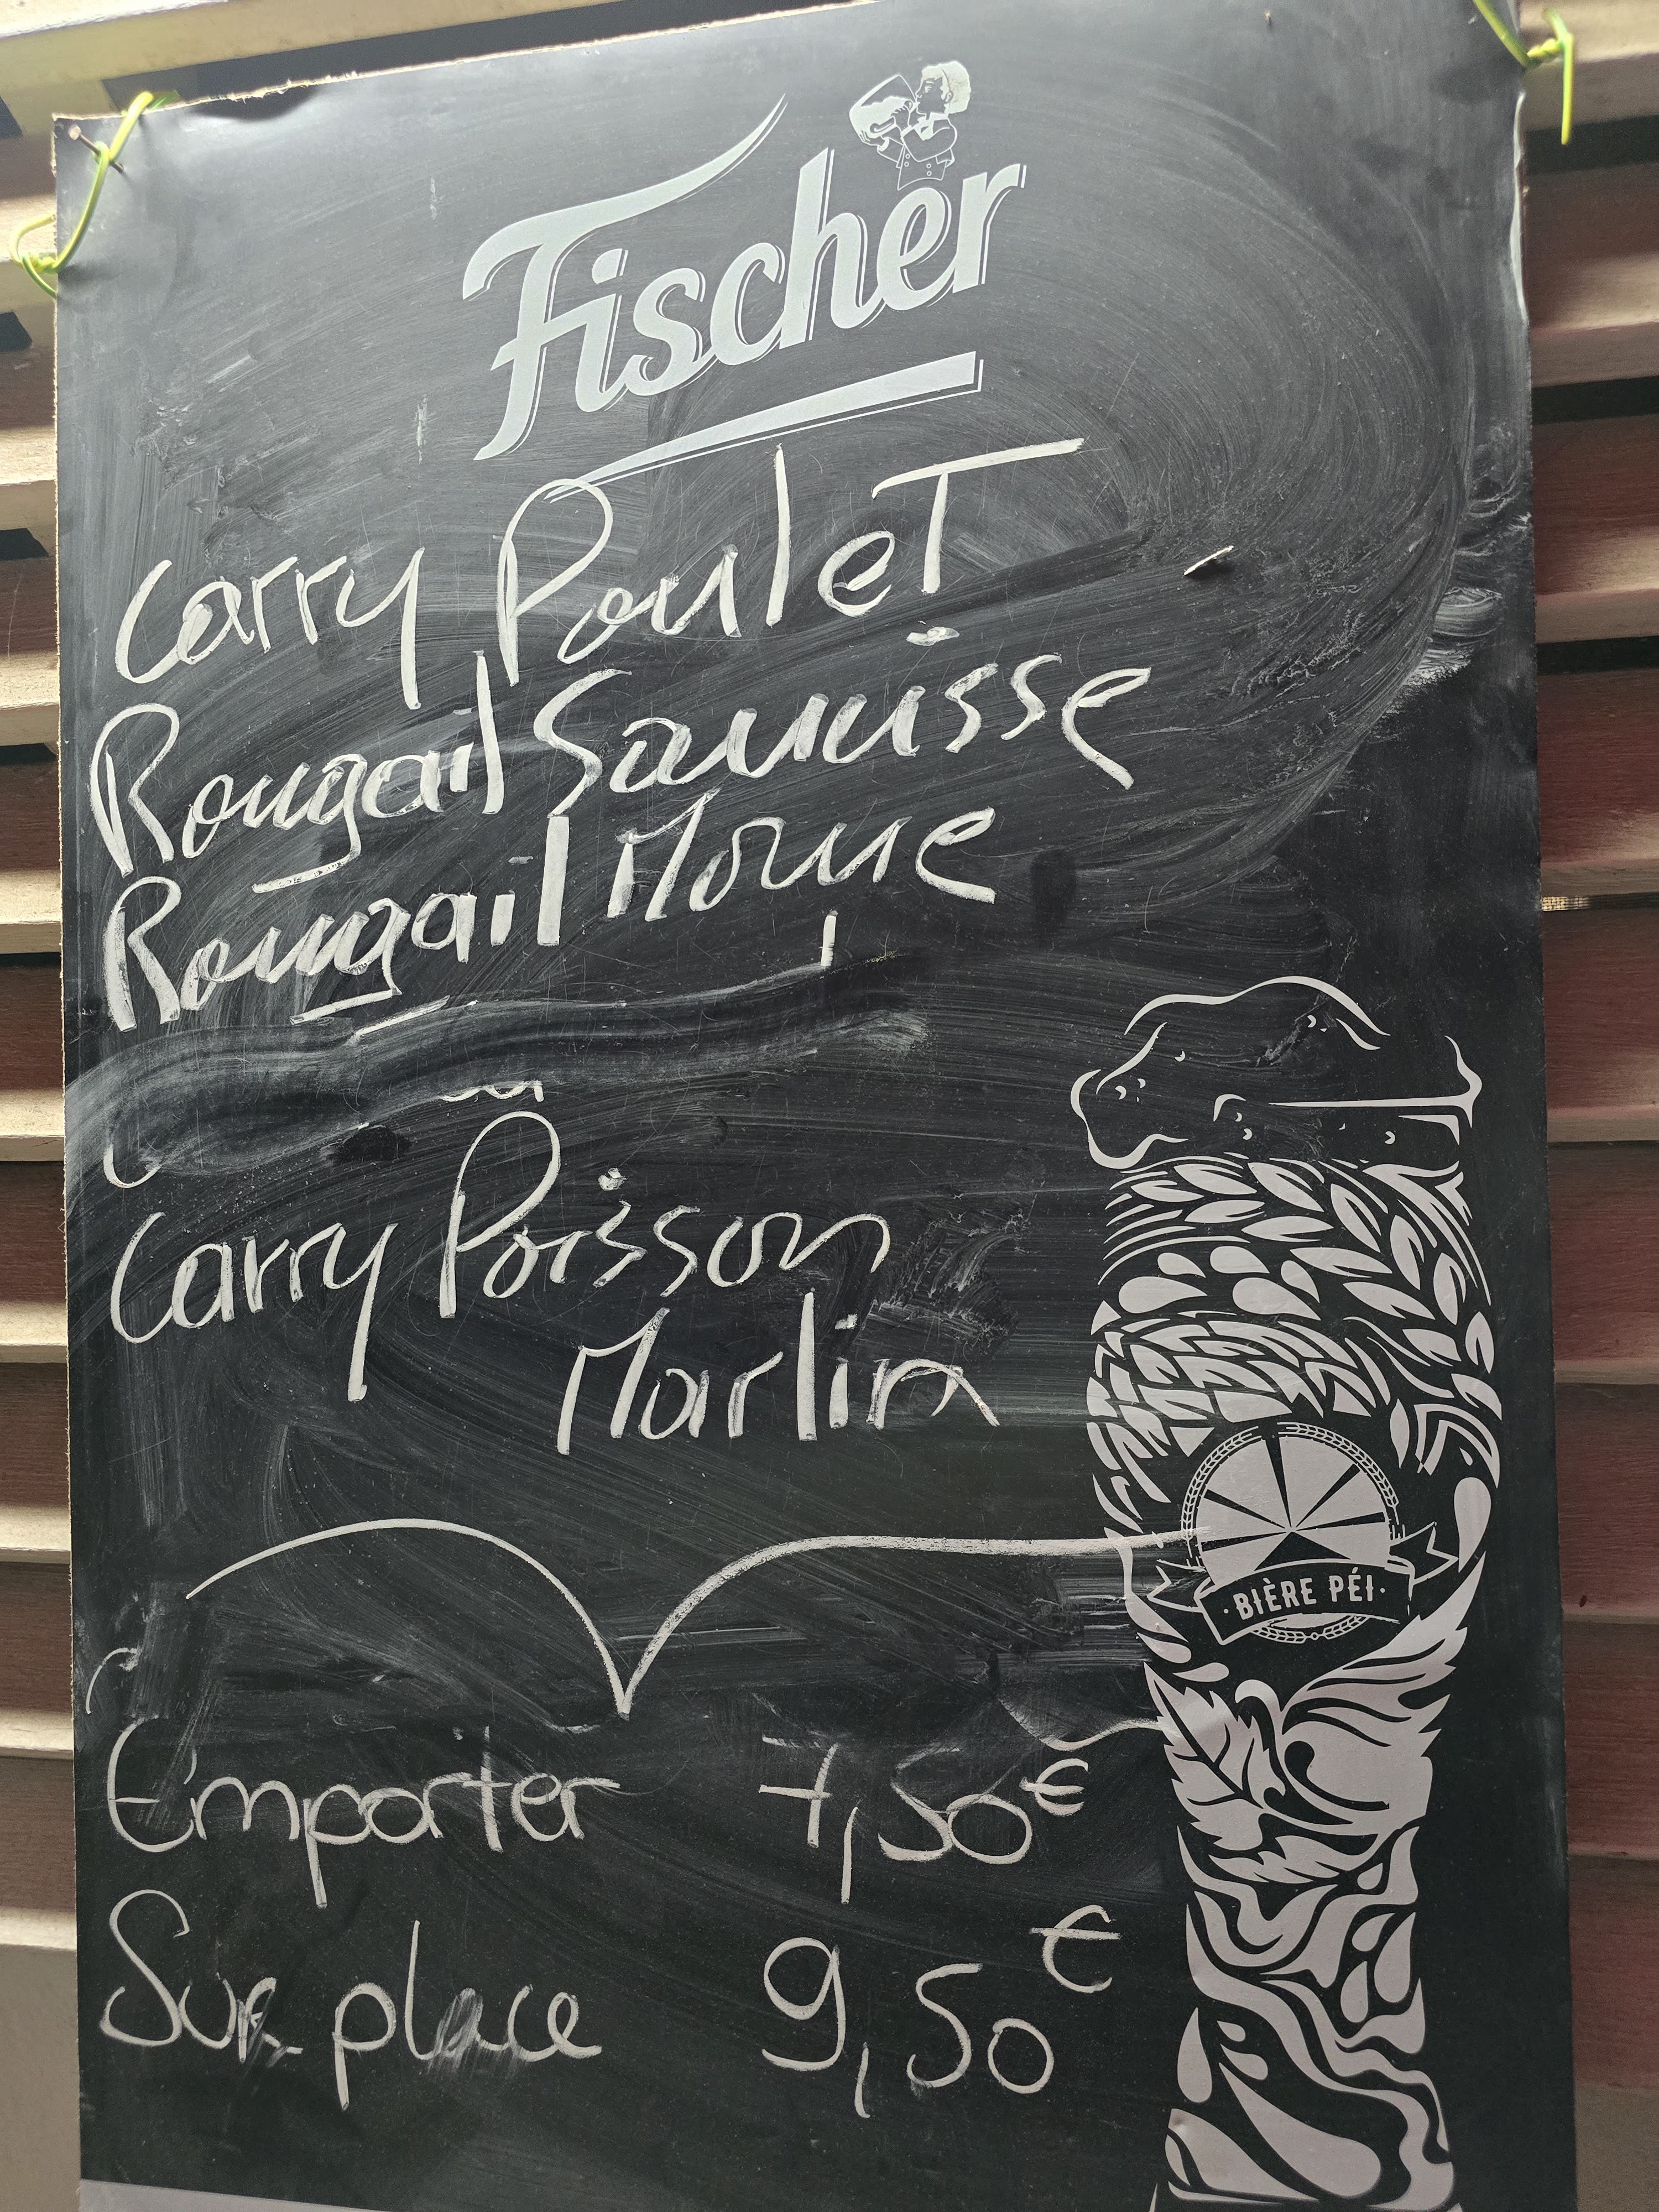 Fischer
Carry Poulet
Rougail Sauuisse
Rougail Morue
Carry Poisson
Marlin
· BIÈRE PÉI ·
Emporter 7,50€
Sur place 9,50€